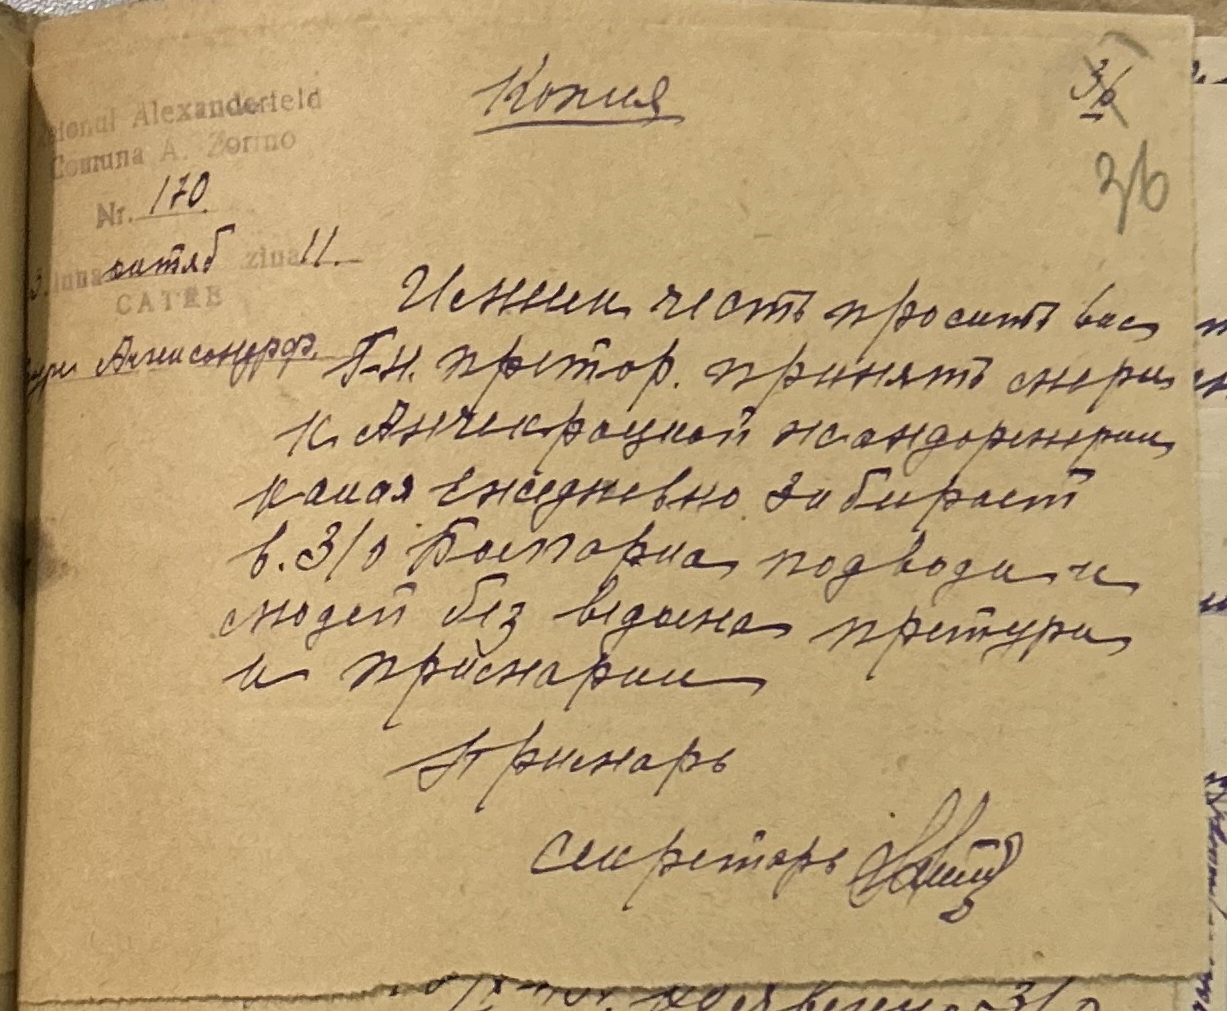 Копия
36
36
Raionul Alexanderfeld
Comuna A. Zorino
Nr. 170
Luna октяб ziua 11.
CATRE
Александрф.
Имеем честь просить вас
Г-н. претор. принять мери
к Анчекрацкой жандормерии
какая ежедневно забирает
в. З/о Бостория подводи и
людей без ведома претури
и примарии
Примарь
Секретарь